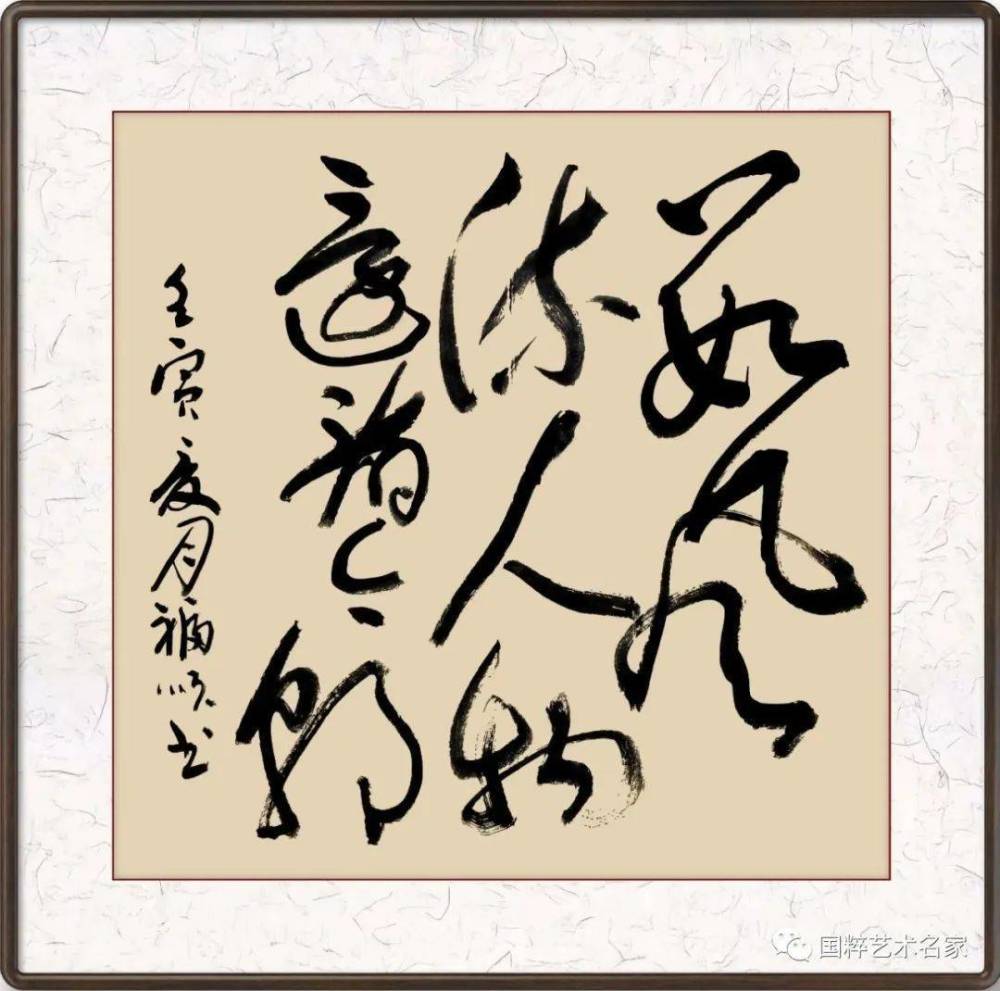 數風
流人物
還看今朝
壬寅夏月福顺书
国粹艺术名家